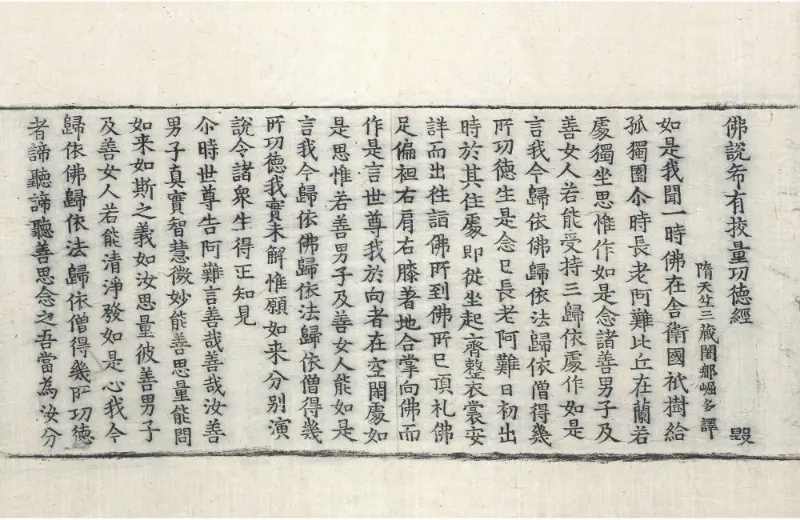 佛說希有挍量功德經 毀
隋天竺三藏闍那崛多譯
如是我聞一時佛在舍衛國祇樹給
孤獨園尒時長老阿難比丘在蘭若
處獨坐思惟作如是念諸善男子及
善女人若能受持三歸依處作如是
言我今歸依佛歸依法歸依僧得幾
所功德生是念已長老阿難日初出
時於其住處即從坐起齊整衣裳安
詳而出往詣佛所到佛所已頂礼佛
足偏袒右肩右膝著地合掌向佛而
作是言世尊我於向者在空閑處如
是思惟若善男子及善女人能如是
言我今歸依佛歸依法歸依僧得幾
所功德我實未解惟願如来分別演
說令諸衆生得正知見
尒時世尊告阿難言善哉善哉汝善
男子真實智慧微妙能善思量能問
如来如斯之義如汝思量彼善男子
及善女人若能清淨發如是心我今
歸依佛歸依法歸依僧得幾所功德
者諦聽諦聽善思念之吾當為汝分